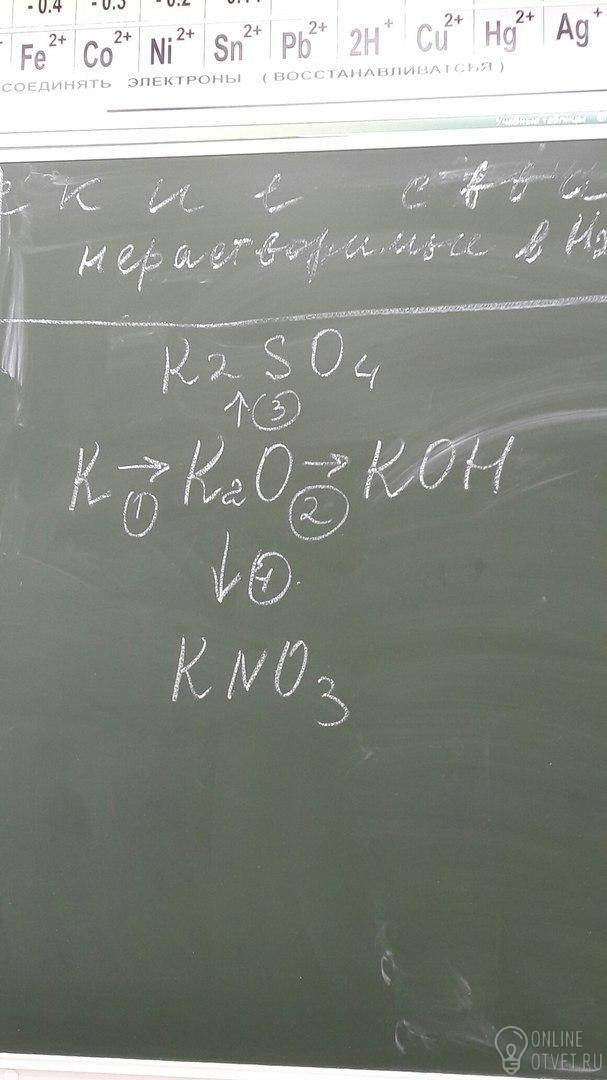 - 0.4 - 0.3 - 0.2
Fe2+ Co2+ Ni2+ Sn2+ Pb2+ 2H+ Cu2+ Hg2+ Ag+
СОЕДИНЯТЬ ЭЛЕКТРОНЫ ( ВОССТАНАВЛИВАТСЬЯ )
нерастворимые в H2
K2SO4
↑ 3
K → K2O → KOH
1 2
↓ 4
KNO3
ONLINE
OTVET.RU